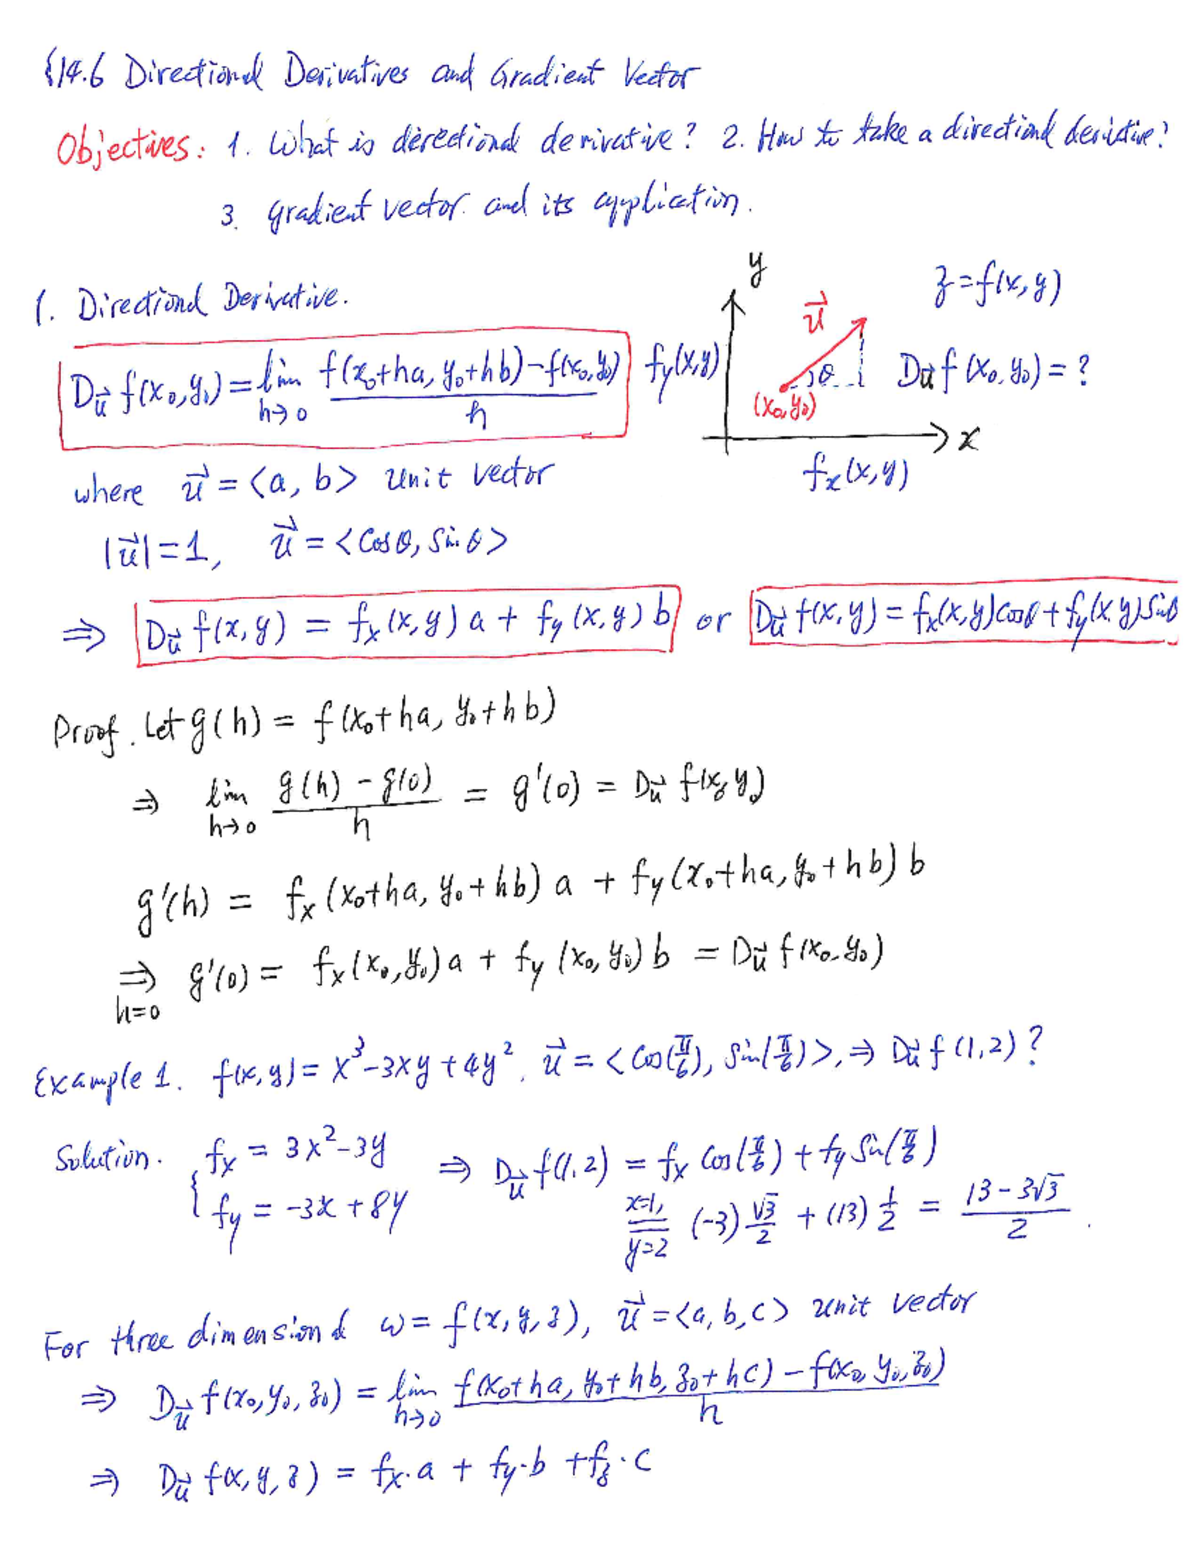 §14.6 Directional Derivatives and Gradient Vector
Objectives: 1. What is directional derivative? 2. How to take a directional derivative?
3. Gradient vector and its application.
1. Directional Derivative.
y
z = f(x, y)
u⃗
D_u⃗ f(x₀, y₀) = lim_{h→0} (f(x₀+ha, y₀+hb) − f(x₀, y₀)) / h
f_y(x, y)
θ
D_u⃗ f(x₀, y₀) = ?
(x₀, y₀)
x
f_x(x, y)
where u⃗ = <a, b> unit vector
|u⃗| = 1, u⃗ = <cosθ, sinθ>
⇒ D_u⃗ f(x, y) = f_x(x, y) a + f_y(x, y) b or D_u⃗ f(x, y) = f_x(x, y) cosθ + f_y(x, y) sinθ
Proof. Let g(h) = f(x₀+ha, y₀+hb)
⇒ lim_{h→0} (g(h) − g(0)) / h = g'(0) = D_u⃗ f(x₀, y₀)
g'(h) = f_x(x₀+ha, y₀+hb) a + f_y(x₀+ha, y₀+hb) b
⇒_{h=0} g'(0) = f_x(x₀, y₀) a + f_y(x₀, y₀) b = D_u⃗ f(x₀, y₀)
Example 1. f(x, y) = x³ − 3xy + 4y², u⃗ = <cos(π/6), sin(π/6)>, ⇒ D_u⃗ f(1, 2)?
Solution. { f_x = 3x² − 3y
f_y = −3x + 8y
⇒ D_u⃗ f(1, 2) = f_x cos(π/6) + f_y sin(π/6)
x=1, y=2 = (−3) √3/2 + (13) 1/2 = (13 − 3√3)/2.
For three dimensional w = f(x, y, z), u⃗ = <a, b, c> unit vector
⇒ D_u⃗ f(x₀, y₀, z₀) = lim_{h→0} (f(x₀+ha, y₀+hb, z₀+hc) − f(x₀, y₀, z₀)) / h
⇒ D_u⃗ f(x, y, z) = f_x·a + f_y·b + f_z·c